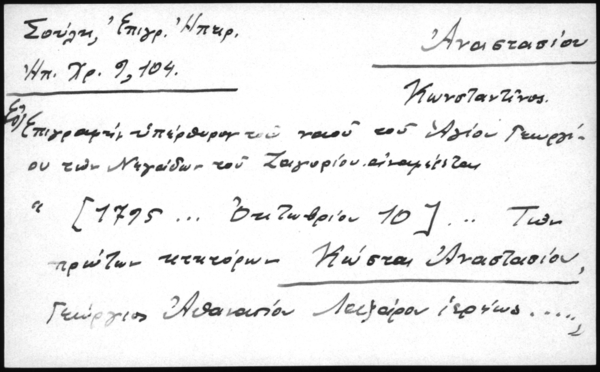 Σούλη, Ἐπιγρ. Ἠπειρ.
Ἠπ. Χρ. 9, 104.
Ἀναστασίου
Κωνσταντῖνος.
Ἐπιγραφή ὑπέρθυρον τοῦ ναοῦ τοῦ Ἁγίου Γεωργί-
ου τῶν Νεγάδων τοῦ Ζαγορίου
" [1795 ... Ὀκτωβρίου 10] ... Τῶν
πρώτων κτητόρων Κώσται Ἀναστασίου,
Γεώργιος Ἀθανασίου ἱερέως .....,